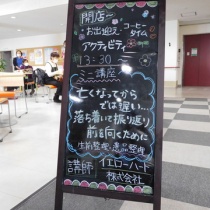 開店〜
お出迎え・コーヒータイム
アクティビティー
13:30〜
ミニ講座
亡くなってから
では遅い…
落ち着いて振り返り
前を向くために
生前整理・遺品整理
講師 イエローハート
株式会社